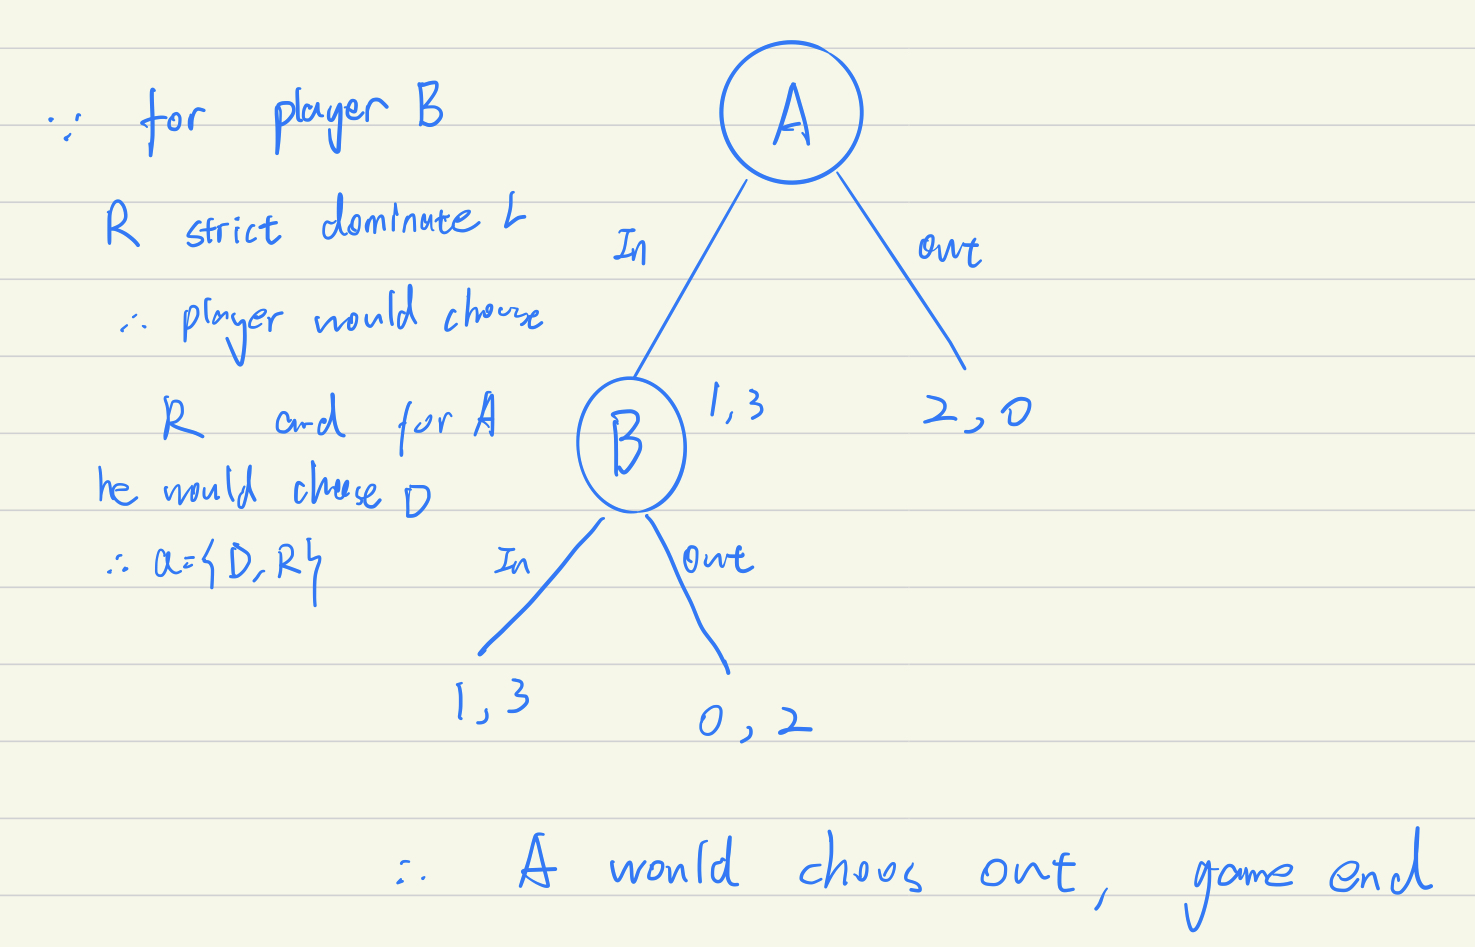 ∵ for player B
R strict dominate L
∴ player would choose
R and for A
he would choose D
∴ a={D,R}
A
In
out
B
1,3
2,0
In
out
1,3
0,2
∴ A would choos out, game end